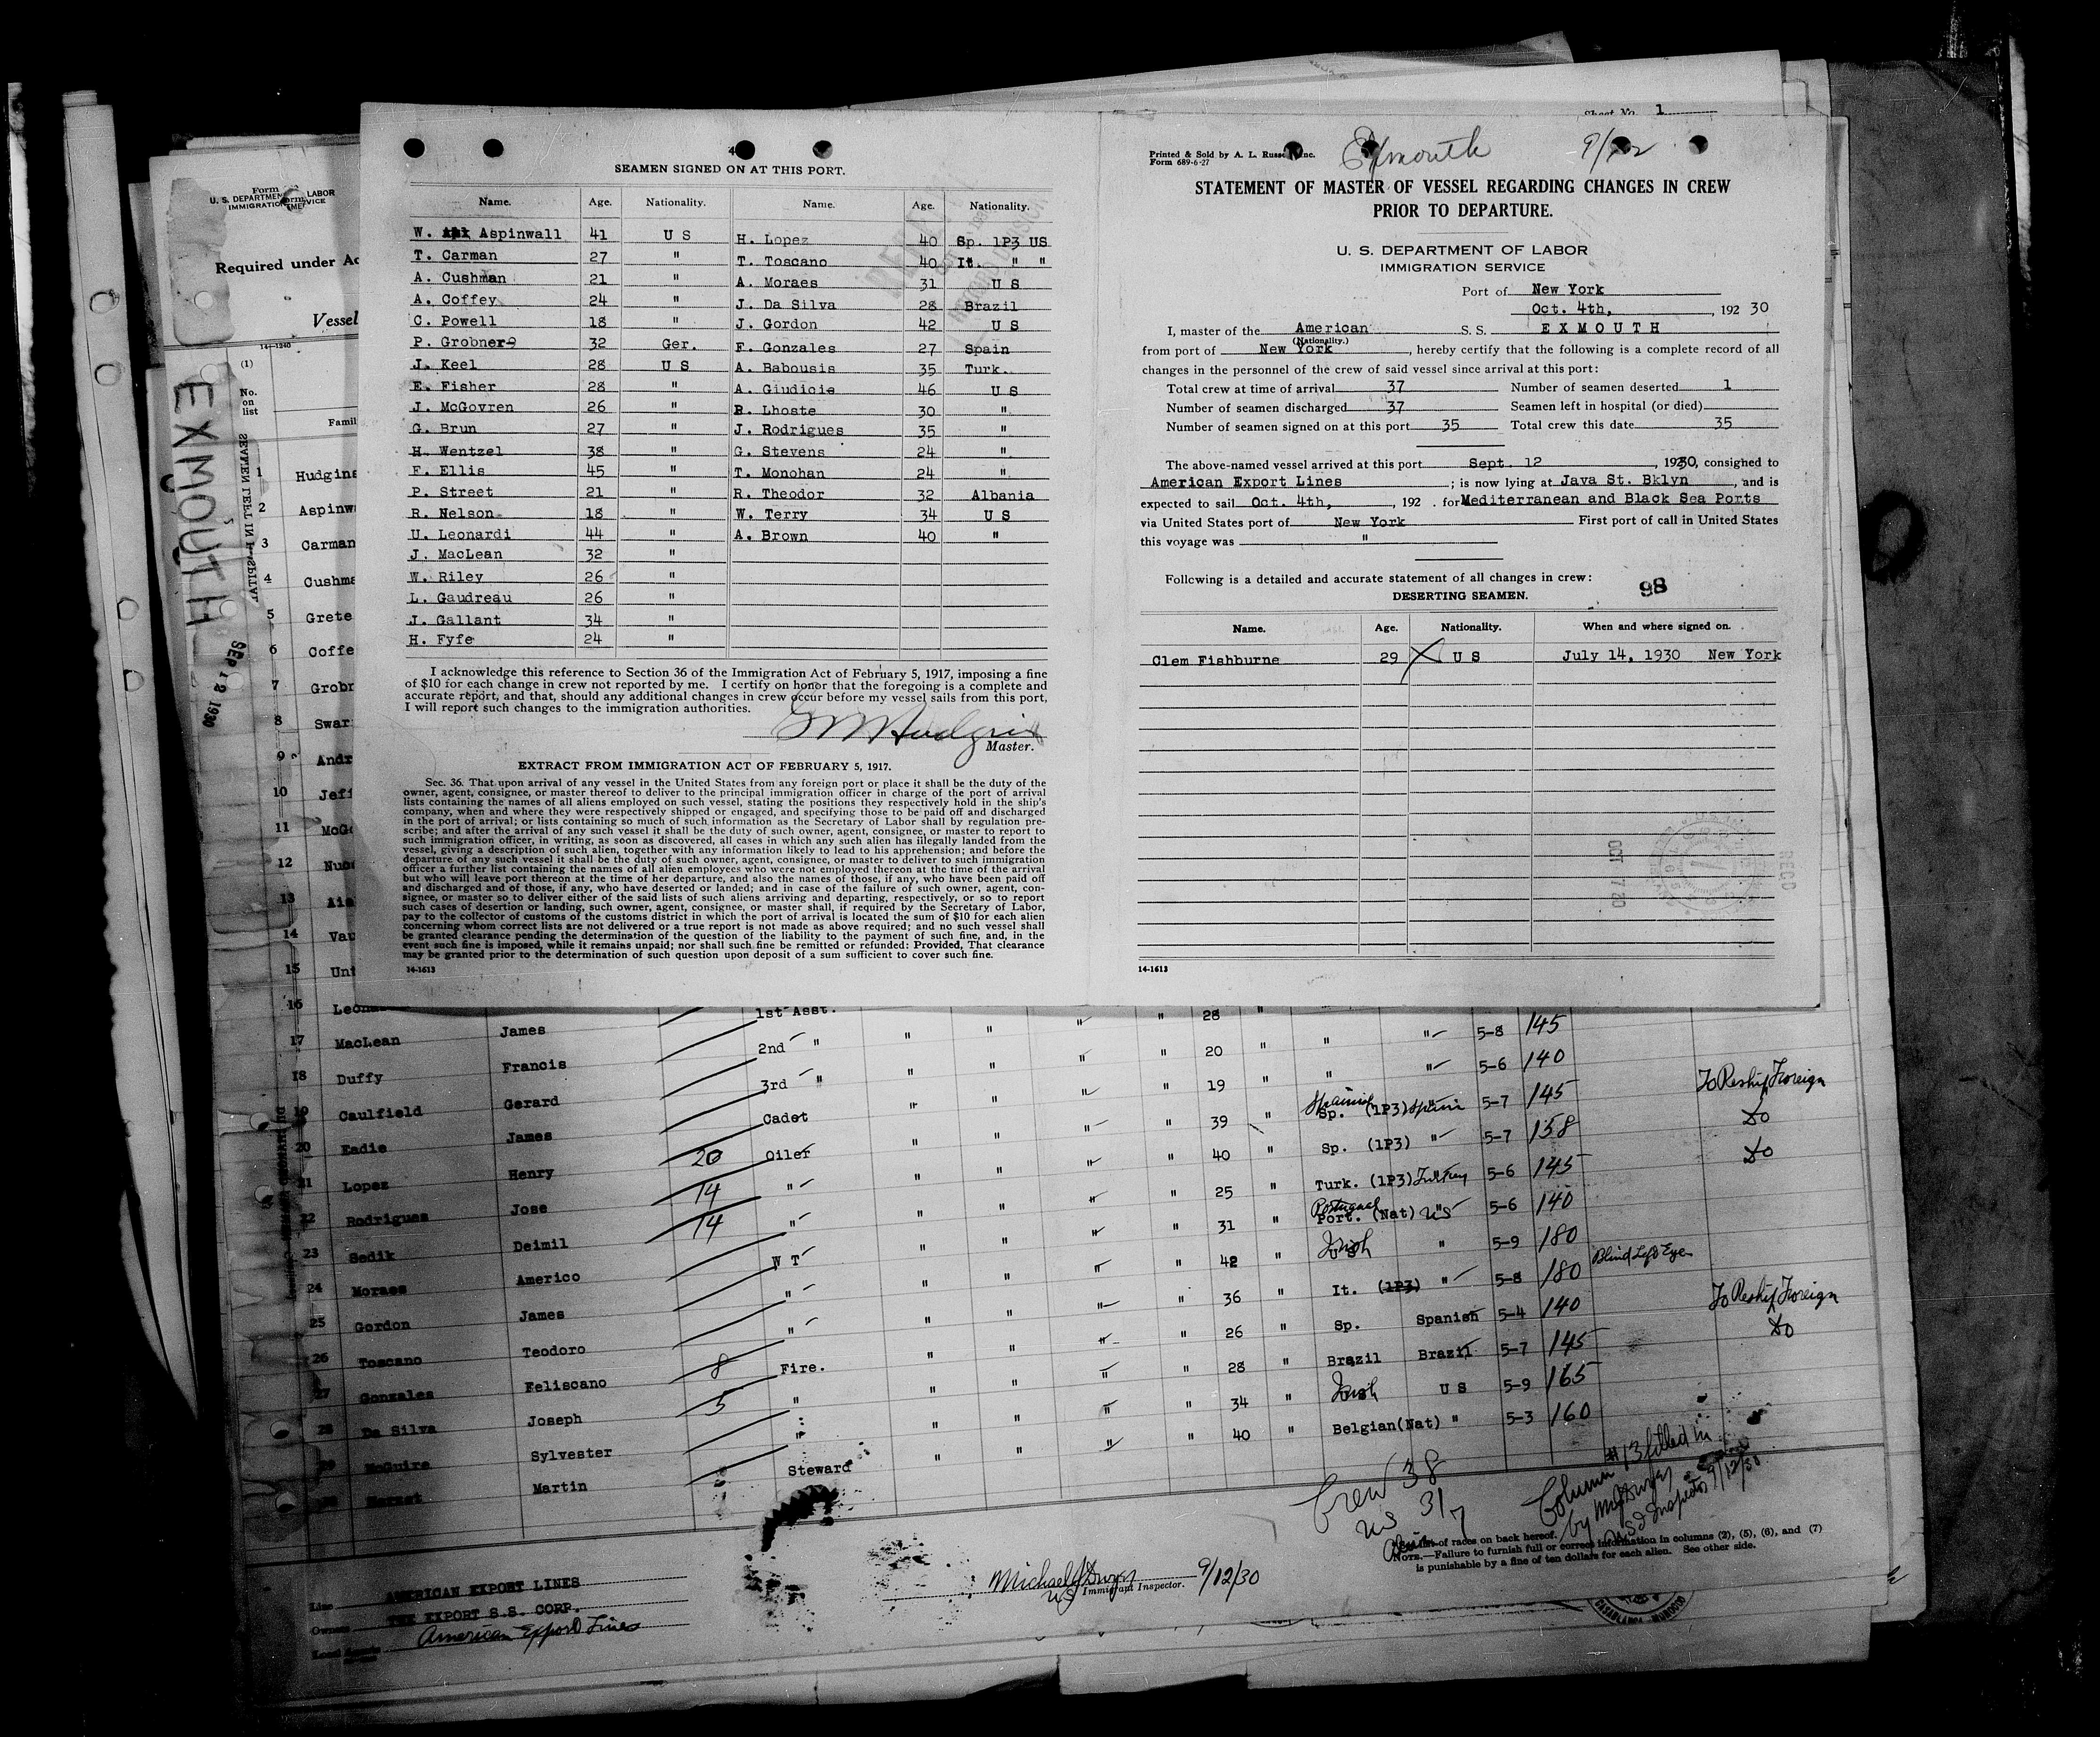 Sheet No. 1
4
SEAMEN SIGNED ON AT THIS PORT.
Name. Age. Nationality. Name. Age. Nationality.
W. Aspinwall 41 U S H. Lopez 40 Sp. 1P3 US
T. Carman 27 " T. Toscano 40 It. " "
A. Cushman 21 " A. Moraes 31 U S
A. Coffey 24 " J. Da Silva 28 Brazil
C. Powell 18 " J. Gordon 42 U S
P. Grobner 32 Ger. F. Gonzales 27 Spain
J. Keel 28 U S A. Babousis 35 Turk.
E. Fisher 28 " A. Giudicis 46 U S
J. McGovren 26 " B. Lhoste 30 "
G. Brun 27 " J. Rodrigues 35 "
H. Wentzel 38 " G. Stevens 24 "
F. Ellis 45 " T. Monohan 24 "
P. Street 21 " R. Theodor 32 Albania
R. Nelson 18 " W. Terry 34 U S
U. Leonardi 44 " A. Brown 40 "
J. MacLean 32 "
W. Riley 26 "
L. Gaudreau 26 "
J. Gallant 34 "
H. Fyfe 24 "
I acknowledge this reference to Section 36 of the Immigration Act of February 5, 1917, imposing a fine
of $10 for each change in crew not reported by me. I certify on honor that the foregoing is a complete and
accurate report, and that, should any additional changes in crew occur before my vessel sails from this port,
I will report such changes to the immigration authorities.
Hudgins
Master.
EXTRACT FROM IMMIGRATION ACT OF FEBRUARY 5, 1917.
Sec. 36. That upon arrival of any vessel in the United States from any foreign port or place it shall be the duty of the
owner, agent, consignee, or master thereof to deliver to the principal immigration officer in charge of the port of arrival
lists containing the names of all aliens employed on such vessel, stating the positions they respectively hold in the ship's
company, when and where they were respectively shipped or engaged, and specifying those to be paid off and discharged
in the port of arrival; or lists containing so much of such information as the Secretary of Labor shall by regulation pre-
scribe; and after the arrival of any such vessel it shall be the duty of such owner, agent, consignee, or master to report to
such immigration officer, in writing, as soon as discovered, all cases in which any such alien has illegally landed from the
vessel, giving a description of such alien, together with any information likely to lead to his apprehension; and before the
departure of any such vessel it shall be the duty of such owner, agent, consignee, or master to deliver to such immigration
officer a further list containing the names of all alien employees who were not employed thereon at the time of the arrival
but who will leave port thereon at the time of her departure, and also the names of those, if any, who have been paid off
and discharged and of those, if any, who have deserted or landed; and in case of the failure of such owner, agent, con-
signee, or master so to deliver either of the said lists of such aliens arriving and departing, respectively, or so to report
such cases of desertion or landing, such owner, agent, consignee, or master shall, if required by the Secretary of Labor,
pay to the collector of customs of the customs district in which the port of arrival is located the sum of $10 for each alien
concerning whom correct lists are not delivered or a true report is not made as above required; and no such vessel shall
be granted clearance pending the determination of the question of the liability to the payment of such fine, and, in the
event such fine is imposed, while it remains unpaid; nor shall such fine be remitted or refunded: Provided, That clearance
may be granted prior to the determination of such question upon deposit of a sum sufficient to cover such fine.
14-1613
Printed & Sold by A. L. Russell Inc.
Form 689-6-27
Exmouth 9/12
STATEMENT OF MASTER OF VESSEL REGARDING CHANGES IN CREW
PRIOR TO DEPARTURE.
U. S. DEPARTMENT OF LABOR
IMMIGRATION SERVICE
Port of New York
Oct. 4th, , 192 30
I, master of the American S. S. EXMOUTH
(Nationality.)
from port of New York , hereby certify that the following is a complete record of all
changes in the personnel of the crew of said vessel since arrival at this port:
Total crew at time of arrival 37 Number of seamen deserted 1
Number of seamen discharged 37 Seamen left in hospital (or died)
Number of seamen signed on at this port 35 Total crew this date 35
The above-named vessel arrived at this port Sept. 12 , 1930, consigned to
American Export Lines ; is now lying at Java St. Bklyn , and is
expected to sail Oct. 4th, , 192 . for Mediterranean and Black Sea Ports
via United States port of New York First port of call in United States
this voyage was "
Following is a detailed and accurate statement of all changes in crew:
98
DESERTING SEAMEN.
Name. Age. Nationality. When and where signed on.
Clem Fishburne 29 X U S July 14, 1930 New York
OCT 7 30
REC'D
14-1613
Form
U. S. DEPARTMENT LABOR
IMMIGRATION SERVICE
Required under Ac
Vessel
14-1240
(1)
No.
on
list
Famil
EXMOUTH
SEAMEN LEFT IN HOSPITAL
SEP 12 1930
1 Hudgins
2 Aspinw
3 Carman
4 Cushma
5 Grete
6 Coffe
7 Grobn
8 Swar
9 Andr
10 Jeff
11 McG
12
13
14 Vau
15 Uni
16 Leona 1st Asst. " 28 "
17 MacLean James 2nd " " " " " 20 " " " 5-8 145
18 Duffy Francis 3rd " " " " " 19 " " " 5-6 140
19 Caulfield Gerard Cadet " " " " 39 " Spanish Sp. (1P3) Spain 5-7 145 To Reship Foreign
20 Eadie James 20 Oiler " " " " 40 " Sp. (1P3) " 5-7 158 Do
21 Lopez Henry 14 " " " " " 25 " Turk. (1P3) Turkey 5-6 145 Do
22 Rodrigues Jose 14 " " " " " 31 " Portugal Port. (Nat) US 5-6 140
23 Sedik Deimil W T " " " " 42 " Irish " 5-9 180
24 Moraes Americo " " " " " 36 " It. (1P3) " 5-8 180 Blind Left Eye
25 Gordon James " " " " " 26 " Sp. Spanish 5-4 140 To Reship Foreign
26 Toscano Teodoro 8 Fire. " " " " 28 " Brazil Brazil 5-7 145 Do
27 Gonzales Feliscano 5 " " " " " 34 " Irish U S 5-9 165
28 Da Silva Joseph " " " " " 40 " Belgian(Nat) " 5-3 160
29 McGuire Sylvester " " "
Martin Steward
Crew 38
US 31
7
Column #13 filled in
by
US Inspector 9/12/30
List of races on back hereof.
NOTE.—Failure to furnish full or correct information in columns (2), (5), (6), and (7)
is punishable by a fine of ten dollars for each alien. See other side.
Michael 9/12/30
US Immigrant Inspector.
Line AMERICAN EXPORT LINES
Owners THE EXPORT S.S. CORP.
Local Agents American Export Lines
CASABLANCA MOROCCO